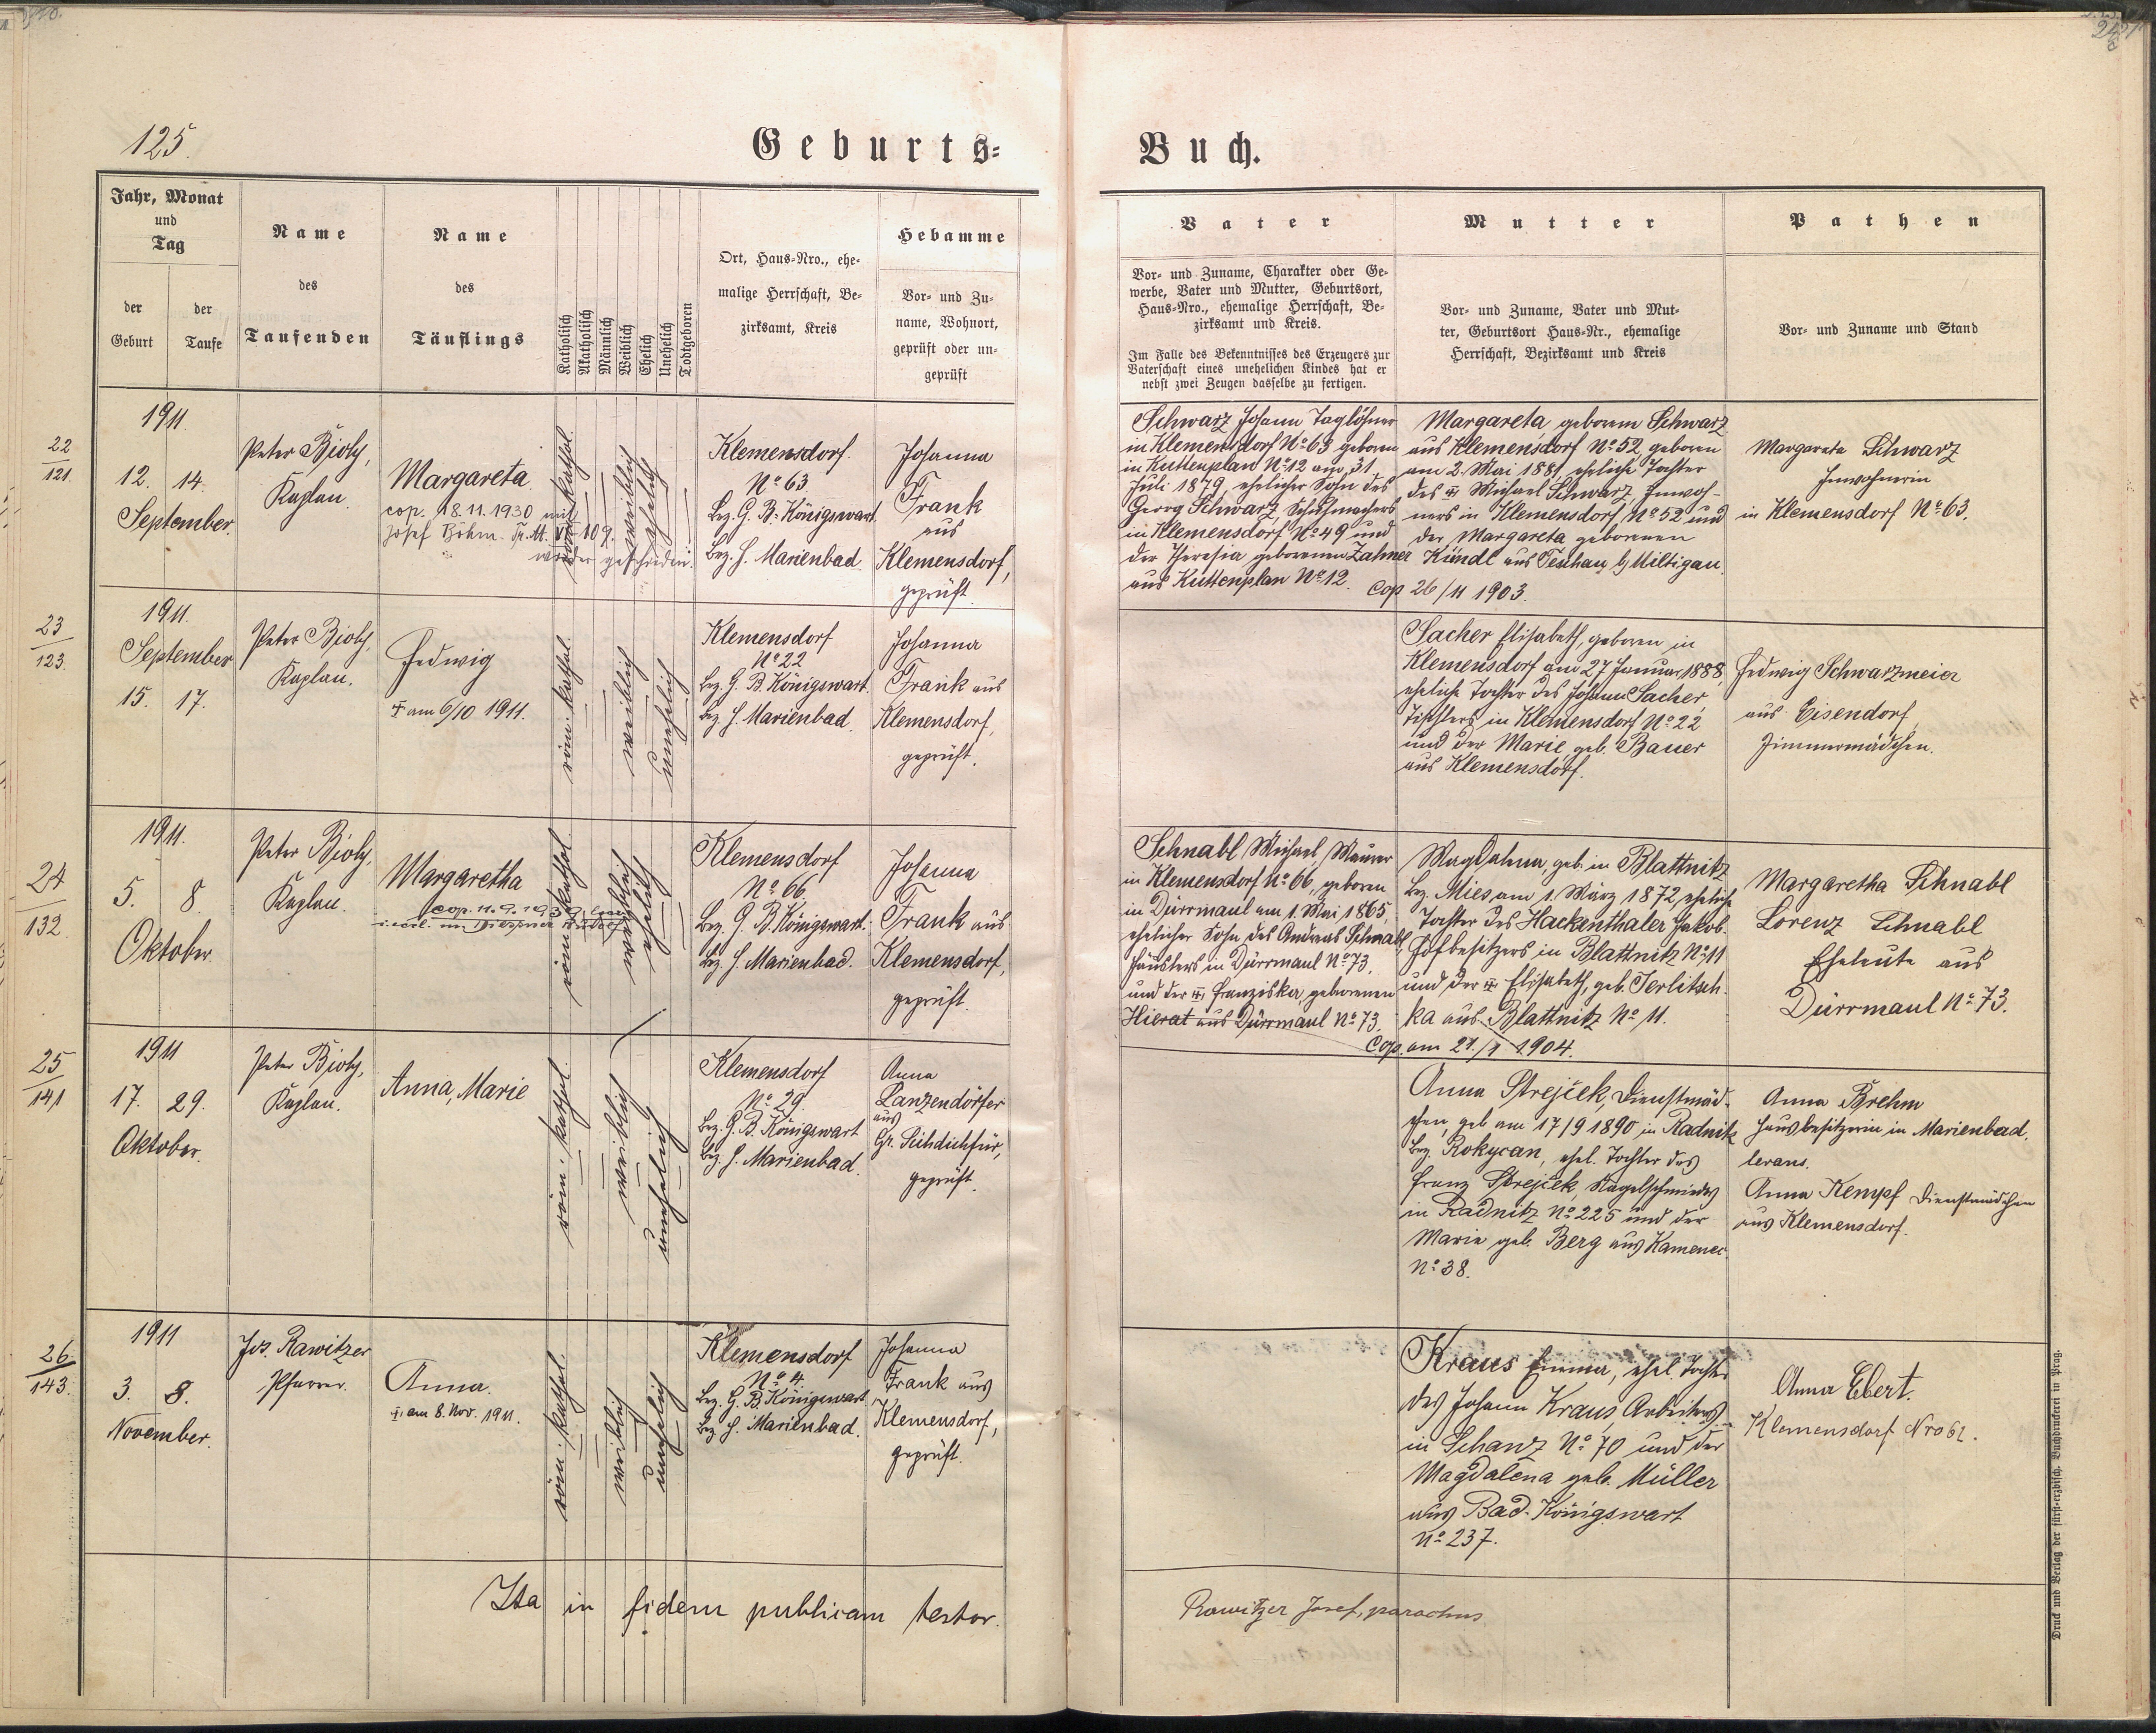 125.
Geburts=
Buch.
Jahr, Monat
und
Tag
der
Geburt
der
Taufe
Name
des
Taufenden
Name
des
Täuflings
Katholisch
Akatholisch
Männlich
Weiblich
Ehelich
Unehelich
Todtgeboren
Ort, Haus=Nro., ehe=
malige Herrschaft, Be=
zirksamt, Kreis
Hebamme
Vor= und Zu=
name, Wohnort,
geprüft oder un=
geprüft
Vater
Vor= und Zuname, Charakter oder Ge=
werbe, Vater und Mutter, Geburtsort,
Haus=Nro., ehemalige Herrschaft, Be=
zirksamt und Kreis.
Im Falle des Bekenntnisses des Erzeugers zur
Vaterschaft eines unehelichen Kindes hat er
nebst zwei Zeugen dasselbe zu fertigen.
Mutter
Vor= und Zuname, Vater und Mut=
ter, Geburtsort Haus=Nr., ehemalige
Herrschaft, Bezirksamt und Kreis
Pathen
Vor= und Zuname und Stand
22
121.
1911.
12. 14.
September.
Peter Bioly,
Kaplan.
Margareta.
cop. 18.11.1930 mit
Josef Böhm. Tr. M. VII 109.
wieder geschieden.
röm. kathol.
weiblich
ehelich
Klemensdorf.
No 63.
Bez. G. B. Königswart.
Bez. H. Marienbad.
Johanna
Frank
aus
Klemensdorf,
geprüft.
Schwarz Johann, Taglöhner
in Klemensdorf No 63 geboren
in Kuttenplan No 12 am 31.
Juli 1879, ehelicher Sohn des
Georg Schwarz, Schuhmachers
in Klemensdorf No 49 und
der Theresia geborenen Zahner
aus Kuttenplan No 12.
Margareta geboren Schwarz
aus Klemensdorf No 52, geboren
am 2. Mai 1881, eheliche Tochter
des Michael Schwarz, Inwoh-
ners in Klemensdorf No 52 und
der Margareta geborenen
Kündl aus Teschau b/ Miltigau.
Cop 26/11 1903.
Margareta Schwarz
Inwohnerin
in Klemensdorf No 63.
23
123.
1911.
September
15. 17.
Peter Bioly,
Kaplan.
Hedwig
† am 6/10 1911.
röm. kathol.
weiblich
unehelich
Klemensdorf
No 22
Bez. G. B. Königswart.
Bez. H. Marienbad.
Johanna
Frank aus
Klemensdorf,
geprüft.
Sacher Elisabeth, geboren in
Klemensdorf am 27 Januar 1888,
eheliche Tochter des Johann Sacher,
Tischlers in Klemensdorf No 22
und der Marie, geb. Bauer
aus Klemensdorf.
Hedwig Schwarzmeier
aus Eisendorf,
Zimmermädchen.
24
132
1911.
5. 8.
Oktober.
Peter Bioly,
Kaplan.
Margaretha
cop. 11.9.1939
röm. kathol.
weiblich
ehelich
Klemensdorf
No 66.
Bez. G. B. Königswart.
Bez. H. Marienbad.
Johanna
Frank aus
Klemensdorf,
geprüft.
Schnabl Michael, Maurer
in Klemensdorf No 66, geboren
in Dürrmaul am 1. Mai 1865,
ehelicher Sohn des Andreas Schnabl,
Häuslers in Dürrmaul No 73,
und der Franziska, geborenen
Hierat aus Dürrmaul No 73.
Magdalena, geb. in Blattnitz
Bez. Mies am 1. März 1872, eheliche
Tochter des Hackenthaler Jakob.
Hofbesitzers in Blattnitz No 11
und der Elisabeth, geb. Terlitsch-
ka aus Blattnitz No 11.
Cop. am 21./1 1904.
Margaretha Schnabl
Lorenz Schnabl
Eheleute aus
Dürrmaul No 73.
25
141
1911
17. 29.
Oktober.
Peter Bioly,
Kaplan.
Anna, Marie
röm. kathol.
weiblich
unehelich
Klemensdorf
No 29.
Bez. G. B. Königswart
Bez. H. Marienbad.
Anna
Lanzendörfer
aus
Gr. Sichdichfür,
geprüft.
Anna Strejček, Dienstmäd-
chen, geb am 17/9 1890 in Radnitz
Bez. Rokycan, ehel. Tochter des
Franz Strejček, Nagelschmiedes
in Radnitz No 225 und der
Marie geb. Berg aus Kamenec
No 38.
Anna Brehm
Hausbesitzerin in Marienbad.
Anna Kempf Dienstmädchen
aus Klemensdorf.
26
143.
1911
3. 8.
November.
Jos. Rawitzer
Pfarrer.
Anna.
† am 8. Nov. 1911.
röm. kathol.
weiblich
unehelich
Klemensdorf
No 4.
Bez. G. B. Königswart
Bez. H. Marienbad.
Johanna
Frank aus
Klemensdorf,
geprüft.
Kraus Emma, ehel. Tochter
des Johann Kraus, Arbeiters
in Schanz No 70 und der
Magdalena geb. Müller
aus Bad-Königswart
No 237.
Anna Ebert.
Klemensdorf Nro 62.
Ita in fidem publicam testor.
Rawitzer Josef, parochus
Druck und Verlag der fürst=erzbisch. Buchdruckerei in Prag.